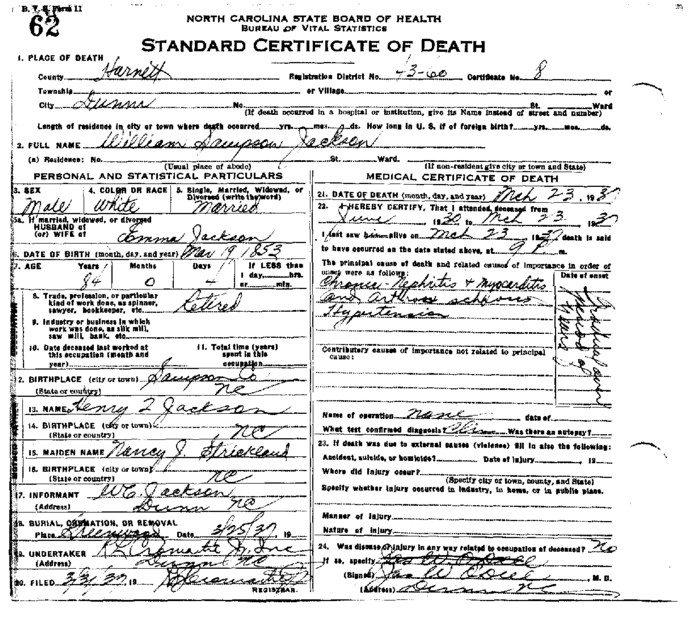 B. V. S. Form 11
62
NORTH CAROLINA STATE BOARD OF HEALTH
BUREAU OF VITAL STATISTICS
STANDARD CERTIFICATE OF DEATH
1. PLACE OF DEATH
County Harnett Registration District No. 43-60 Certificate No. 8
Township or Village or
City Dunn No. St. Ward
(If death occurred in a hospital or institution, give its Name instead of street and number)
Length of residence in city or town where death occurred yrs. mos. ds. How long in U. S. if of foreign birth? yrs. mos. ds.
2. FULL NAME William Sampson Jackson
(a) Residence: No. St. Ward.
(Usual place of abode) (If non-resident give city or town and State)
PERSONAL AND STATISTICAL PARTICULARS
3. SEX 4. COLOR OR RACE 5. Single, Married, Widowed, or Divorced (write the word)
Male White Married
5a. If married, widowed, or divorced
HUSBAND of
(or) WIFE of Emma Jackson
6. DATE OF BIRTH (month, day, and year) Mar 19 1853
7. AGE Years Months Days If LESS than
1 day, hrs.
84 0 4 or min.
8. Trade, profession, or particular
kind of work done, as spinner,
sawyer, bookkeeper, etc. Retired
9. Industry or business in which
work was done, as silk mill,
saw mill, bank, etc.
10. Date deceased last worked at
this occupation (month and
year)
11. Total time (years)
spent in this
occupation
12. BIRTHPLACE (city or town) Sampson Co
(State or country) NC
13. NAME Henry Jackson
14. BIRTHPLACE (city or town)
(State or country) NC
15. MAIDEN NAME Nancy J. Strickland
16. BIRTHPLACE (city or town)
(State or country) NC
17. INFORMANT W.C. Jackson
(Address) Dunn NC
18. BURIAL, CREMATION, OR REMOVAL
Place Greenwood Date 3/25/37, 19
19. UNDERTAKER Inc
(Address) Dunn NC
20. FILED 3/31/37 19
REGISTRAR.
MEDICAL CERTIFICATE OF DEATH
21. DATE OF DEATH (month, day, and year) Mch 23, 1937
22. I HEREBY CERTIFY, That I attended deceased from
June 1930, to Mch 23, 1937
I last saw him alive on Mch 23, 1937 death is said
to have occurred on the date stated above, at 9 P m.
The principal cause of death and related causes of importance in order of
onset were as follows:
Date of onset
Chronic Nephritis + Myocarditis
and
Hypertension
Gradual over
Period of
Years
Contributory causes of importance not related to principal
cause:
Name of operation None date of
What test confirmed diagnosis? Clin Was there an autopsy?
23. If death was due to external causes (violence) fill in also the following:
Accident, suicide, or homicide? Date of injury , 19
Where did injury occur?
(Specify city or town, county, and State)
Specify whether injury occurred in industry, in home, or in public place.
Manner of injury
Nature of injury
24. Was disease or injury in any way related to occupation of deceased? No
If so, specify
(Signed) Jas W , M. D.
(Address) Dunn NC